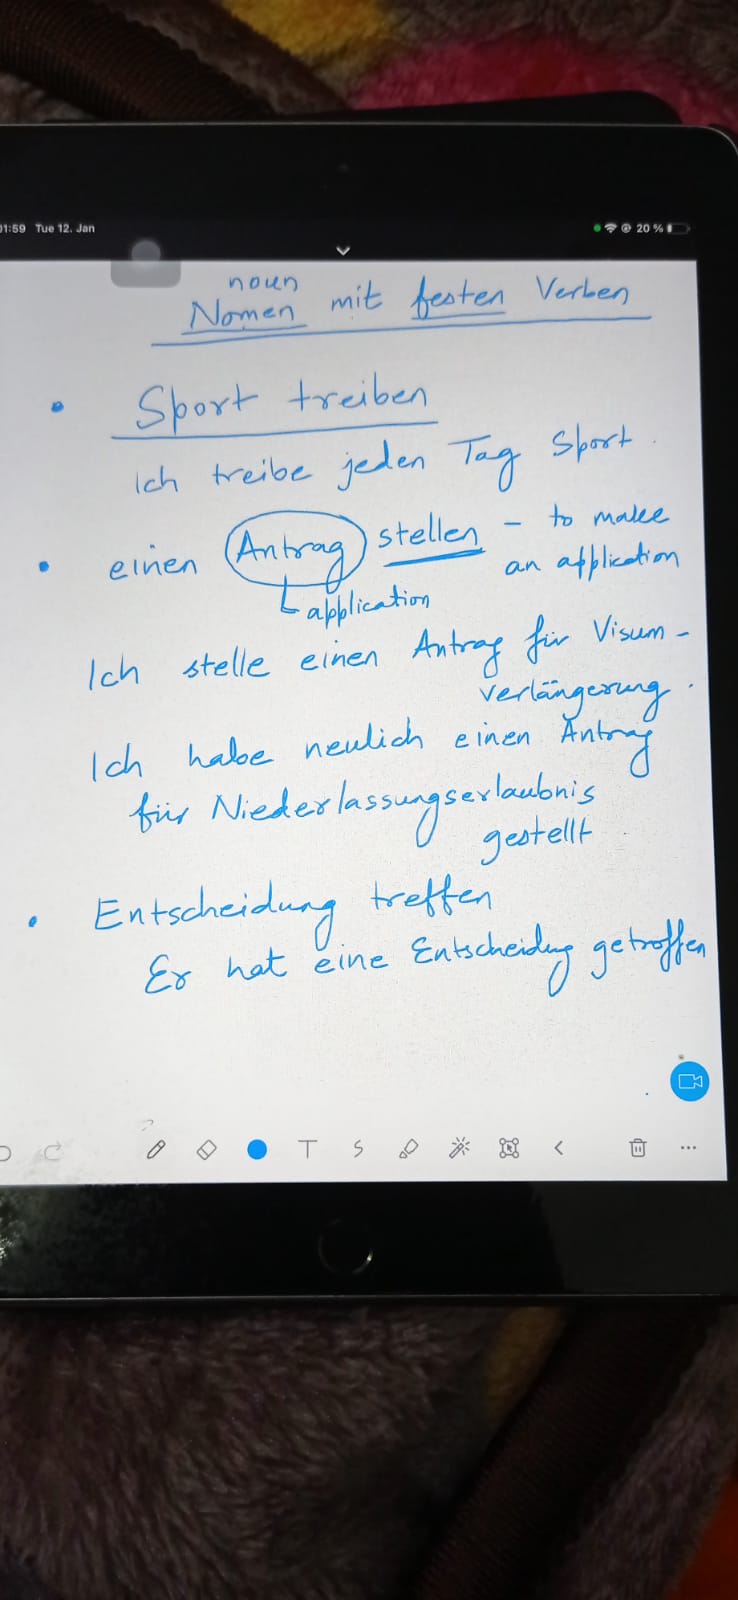 01:59 Tue 12. Jan
20 %
noun
Nomen mit festen Verben
• Sport treiben
Ich treibe jeden Tag Sport.
• einen Antrag stellen - to make
an application
application
Ich stelle einen Antrag für Visum-
verlängerung.
Ich habe neulich einen Antrag
für Niederlassungserlaubnis
gestellt
• Entscheidung treffen
Er hat eine Entscheidung getroffen
T